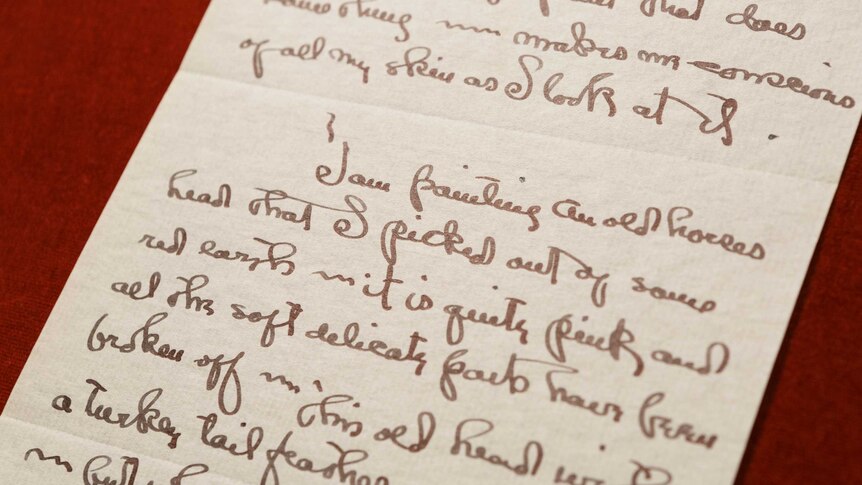 that does
something ~ makes me conscious
of all my skin as I look at it .
I am painting an old horses
head that I picked out of some
red earth ~ it is quite pink and
all the soft delicate parts have been
broken off ~ This old head with
a turkey tail feather
~ but